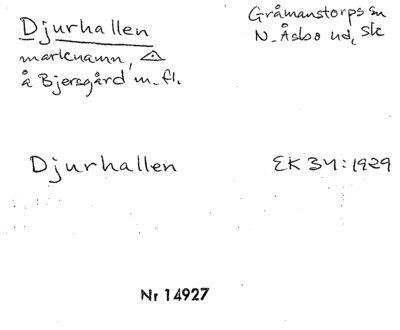 Djurhallen
Gråmanstorps sn
N. Åsbo hd, Sk
marknamn, ⚠
å Bjersgård m. fl.
Djurhallen
EK 34:1929
Nr 14927